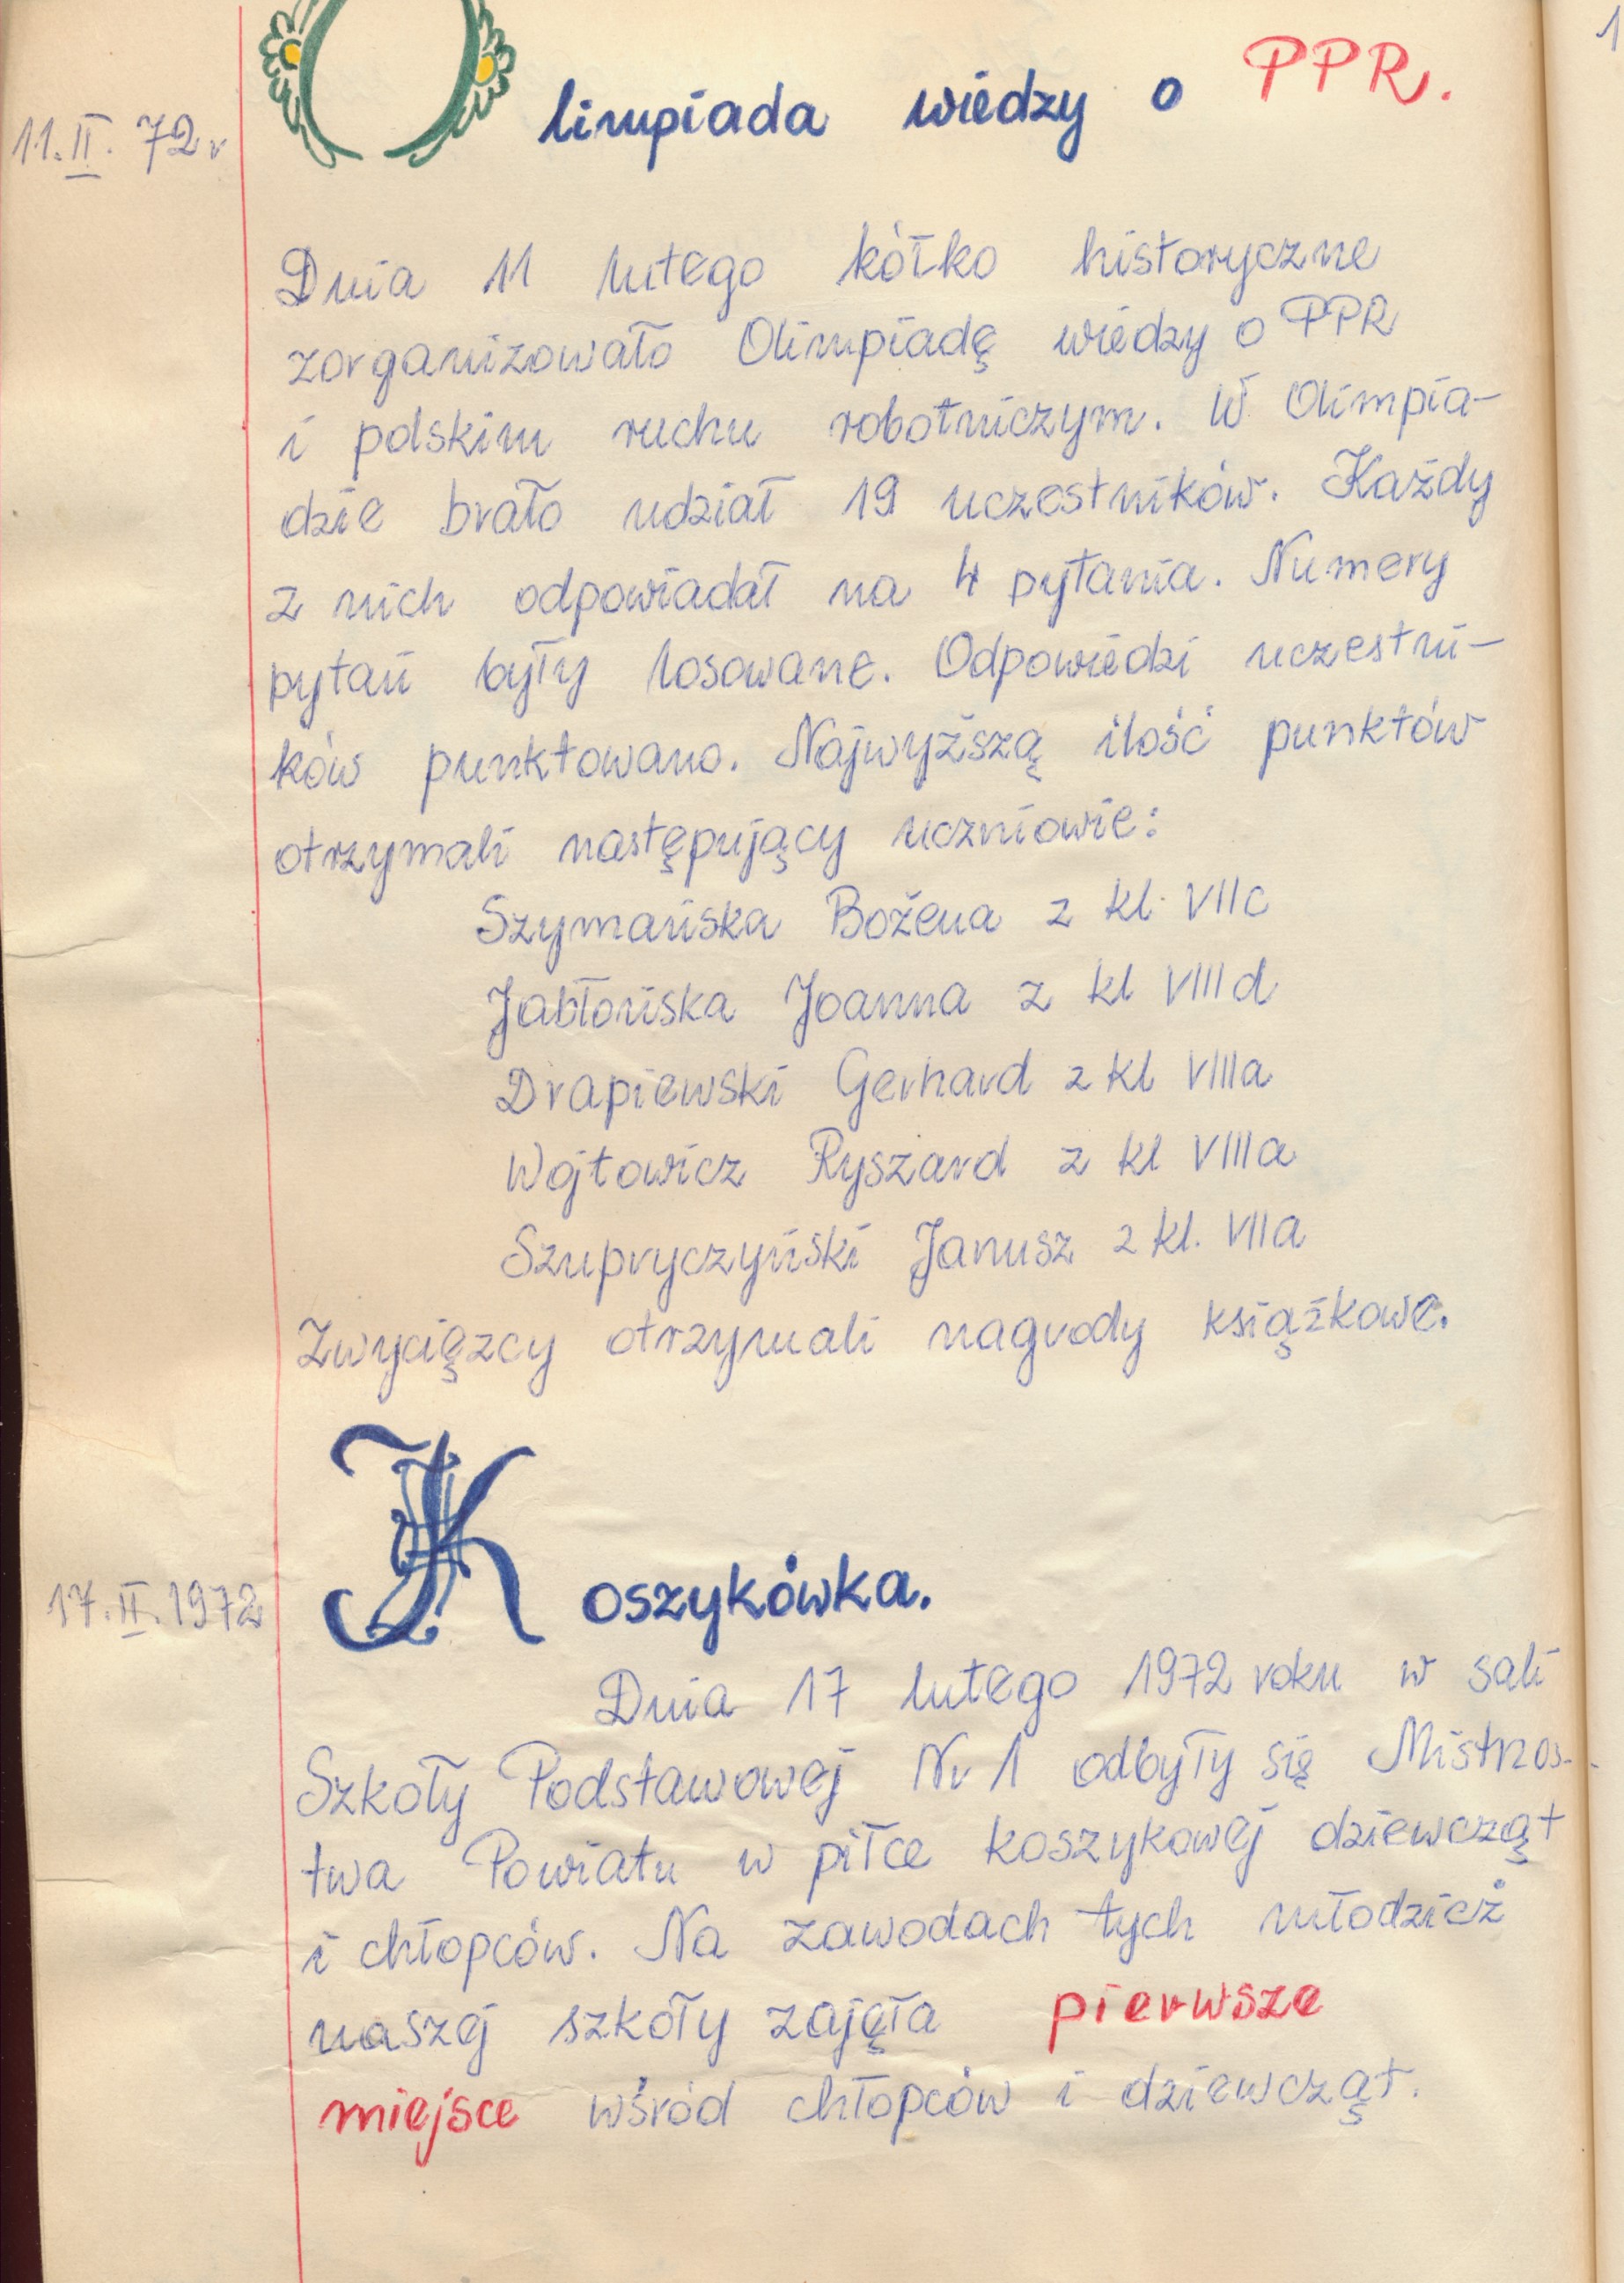 11.II.72r
Olimpiada wiedzy o PPR.
Dnia 11 lutego kółko historyczne
zorganizowało Olimpiadę wiedzy o PPR
i polskim ruchu robotniczym. W Olimpia-
dzie brało udział 19 uczestników. Każdy
z nich odpowiadał na 4 pytania. Numery
pytań były losowane. Odpowiedzi uczestni-
ków punktowano. Najwyższą ilość punktów
otrzymali następujący uczniowie:
Szymańska Bożena z kl. VIIc
Jabłońska Joanna z kl VIIId
Drapiewski Gerhard z kl VIIIa
Wojtowicz Ryszard z kl VIIIa
Szupryczyński Janusz z kl. VIIa
Zwycięzcy otrzymali nagrody książkowe.
17.II.1972
Koszykówka.
Dnia 17 lutego 1972 roku w sali
Szkoły Podstawowej Nr 1 odbyły się Mistrzos-
twa Powiatu w piłce koszykowej dziewcząt
i chłopców. Na zawodach tych młodzież
naszej szkoły zajęła pierwsze
miejsce wśród chłopców i dziewcząt.
1